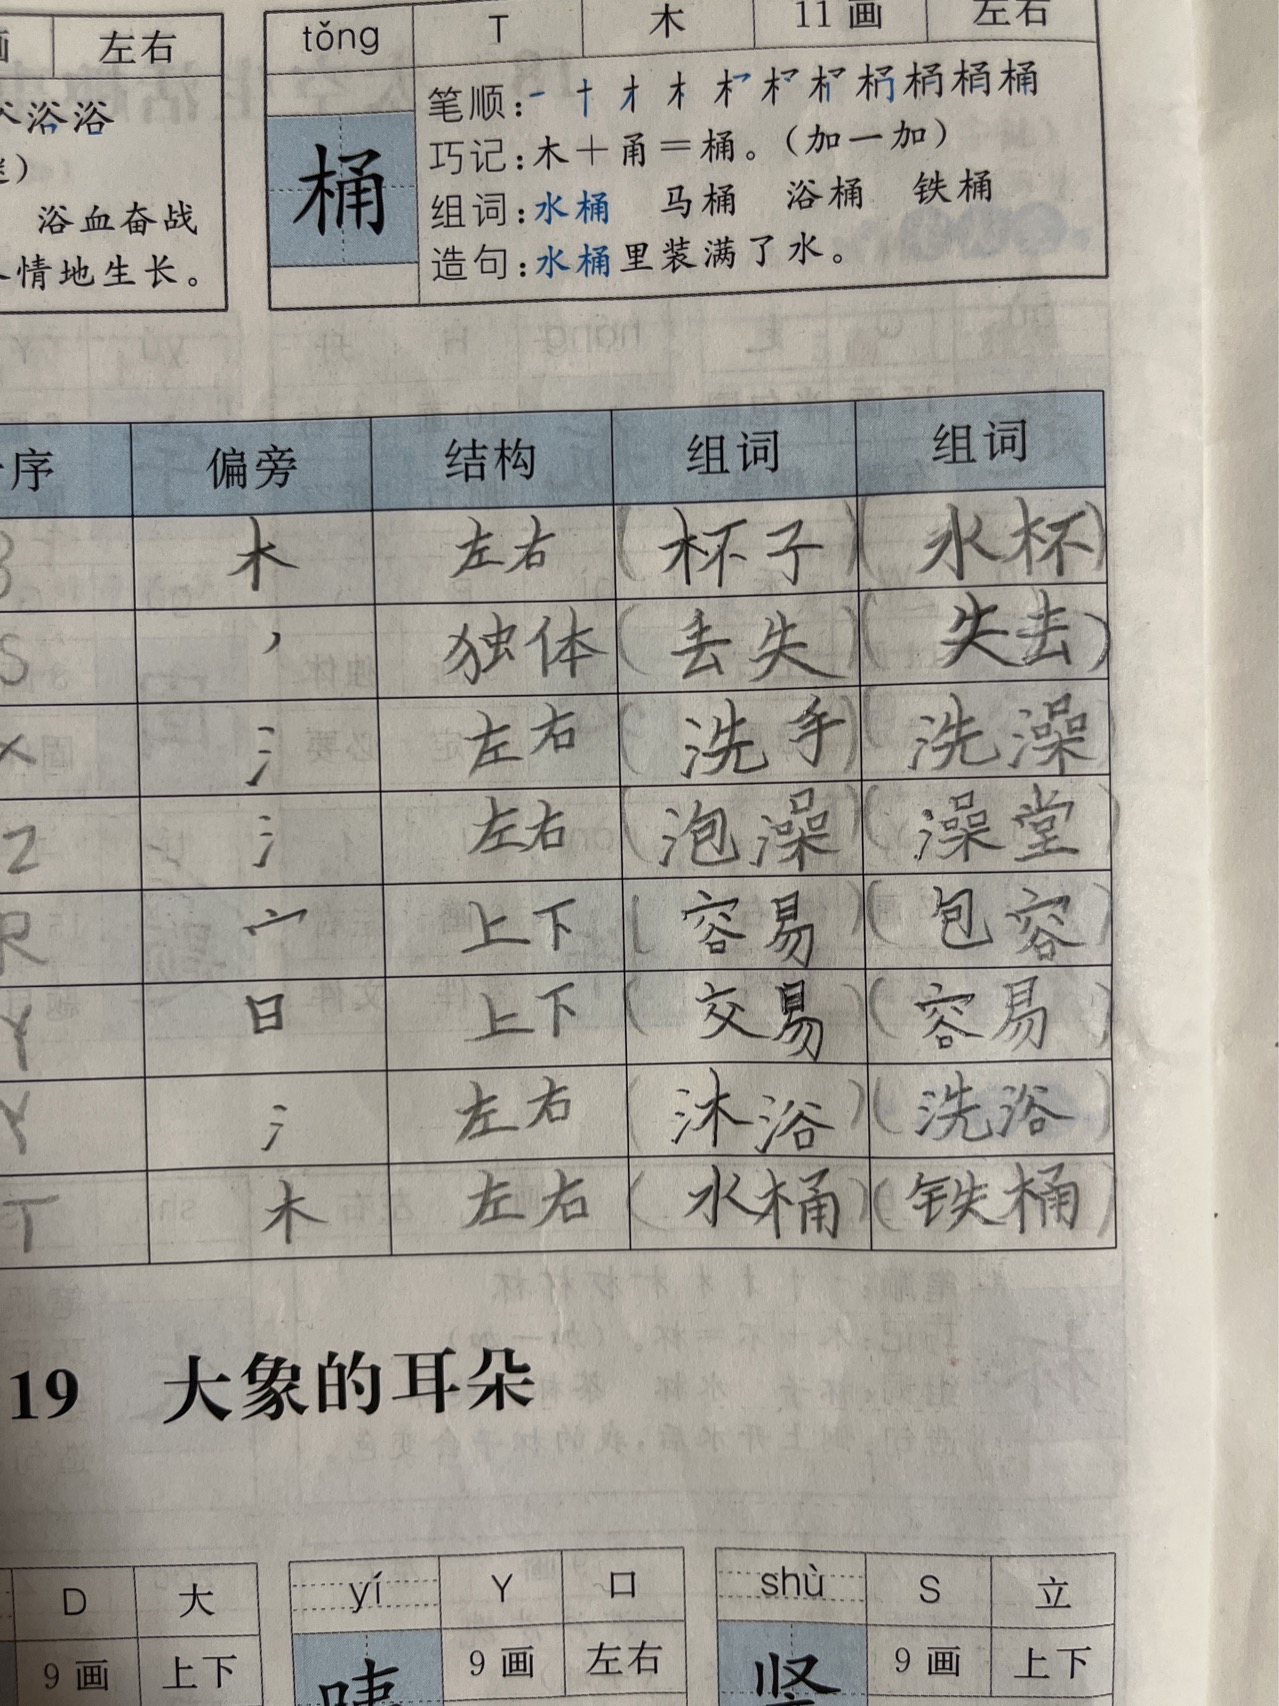 画 左右
浴浴
浴血奋战
情地生长。
tǒng T 木 11画 左右
桶
笔顺：一 十 才 木
巧记：木＋甬＝桶。（加一加）
组词：水桶 马桶 浴桶 铁桶
造句：水桶里装满了水。
序 偏旁 结构 组词 组词
B 木 左右 （杯子）（水杯）
S 丿 独体（丢失）（失去）
X 氵 左右（洗手）（洗澡）
Z 氵 左右（泡澡）（澡堂）
R 宀 上下（容易）（包容）
Y 日 上下（交易）（容易）
Y 氵 左右（沐浴）（洗浴）
T 木 左右（水桶）（铁桶）
19 大象的耳朵
D 大
9画 上下
yí Y 口
咦 9画 左右
shù S 立
竖 9画 上下